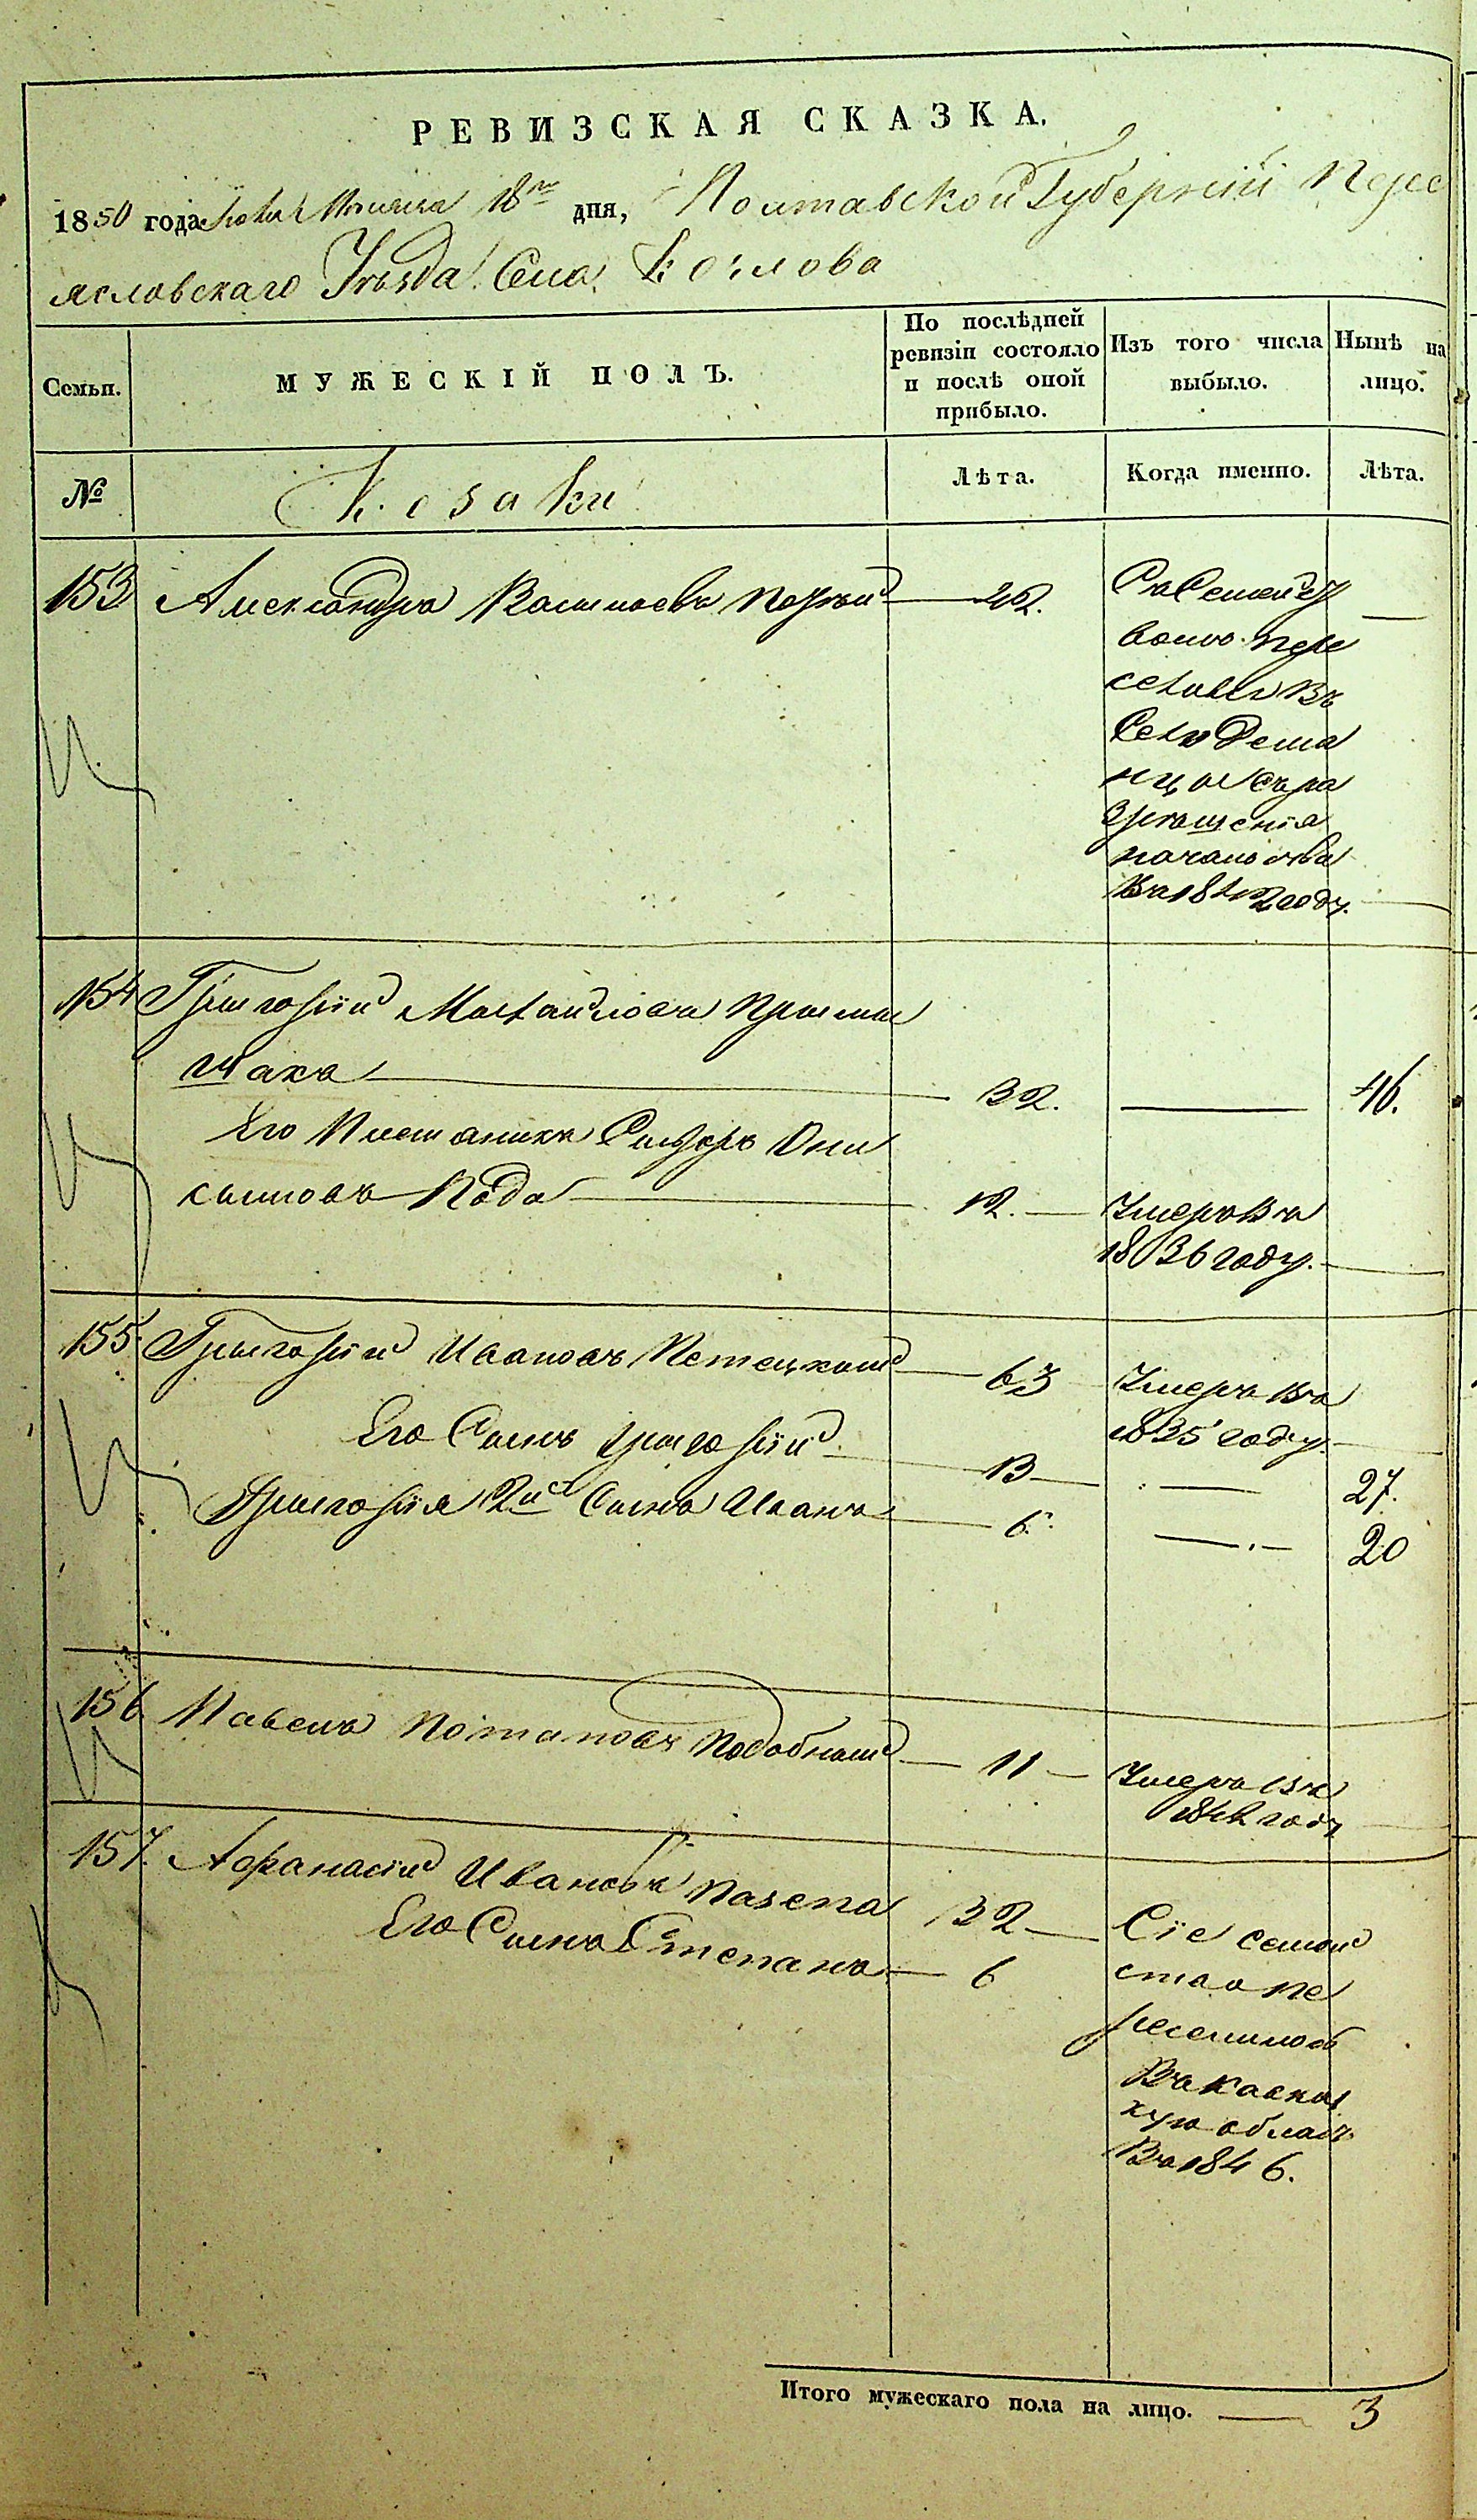 РЕВИЗСКАЯ СКАЗКА.
1850 года Июля Месяца 18го дня, Полтавской Губернiи Пере
ясловскаго Уѣзда Села Козлова
Семьи.
МУЖЕСКIЙ ПОЛЪ.
По послѣдней ревизiи состояло и послѣ оной прибыло.
Изъ того числа выбыло.
Нынѣ на лицо.
№
Козаки
Лѣта.
Когда именно.
Лѣта.
153 Александръ Васильевъ 42.
Съ Семей
ствомъ пере
селенъ въ
Село Деша
нцы съ ра
зрѣшенiя
начальства
въ 1842 году.
154 Григорiй Михайловъ
32. 46.
Его Племянникъ Сидоръ Они
симовъ 12. Умеръ въ
1836 году.
155 Григорiй Ивановъ 63 Умеръ въ
1835 году
Его Сынъ Григорiй 13 27.
Григорiя 2й Сынъ Иванъ 6. 20
156 Павелъ Потаповъ Подобный 11 Умеръ въ
году
157. Афанасiй Ивановъ Пазепа 32
Его Сынъ Степанъ 6
Сiе семей
ство пе
реселилось
въ Кавказ
кую облас
въ 1846.
Итого мужескаго пола на лицо. 3